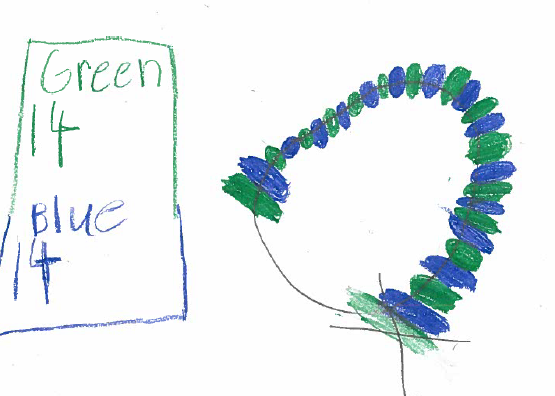 Green
14
Blue
14